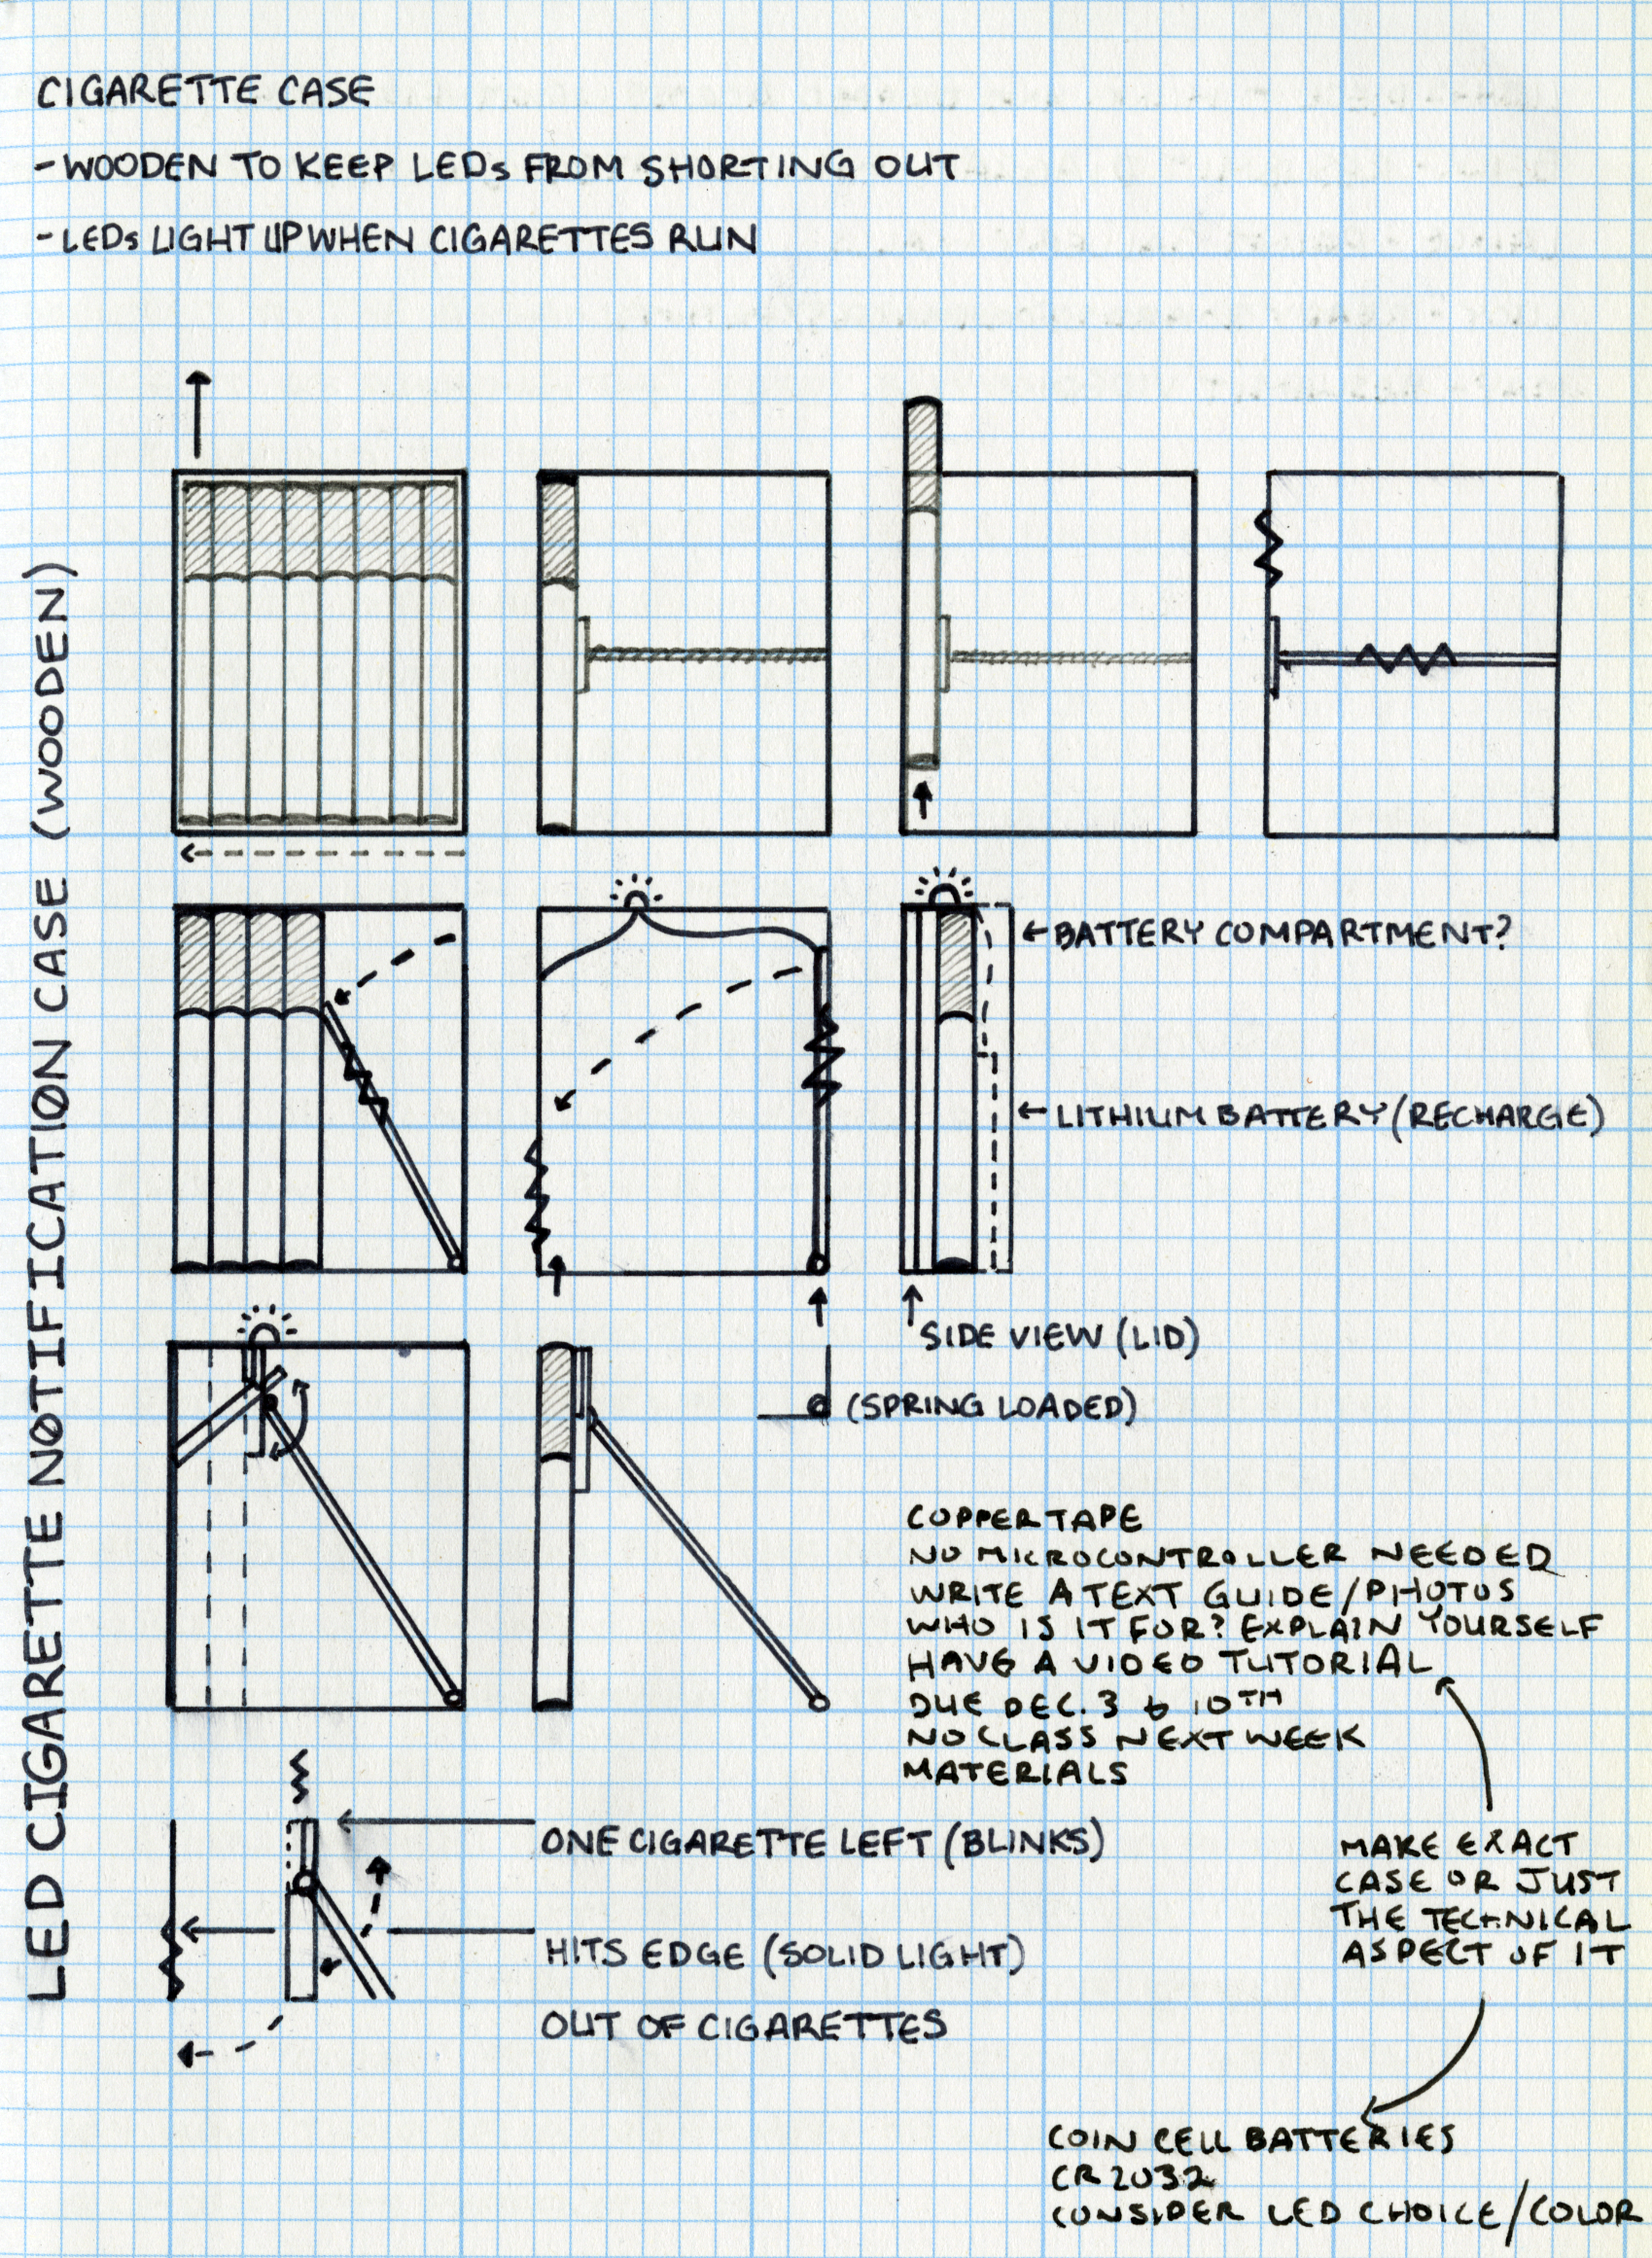 CIGARETTE CASE
-WOODEN TO KEEP LEDs FROM SHORTING OUT
-LEDs LIGHT UP WHEN CIGARETTES RUN
LED CIGARETTE NOTIFICATION CASE (WOODEN)
←BATTERY COMPARTMENT?
←LITHIUM BATTERY (RECHARGE)
SIDE VIEW (LID)
(SPRING LOADED)
COPPER TAPE
NO MICROCONTROLLER NEEDED
WRITE A TEXT GUIDE/PHOTOS
WHO IS IT FOR? EXPLAIN YOURSELF
HAVE A VIDEO TUTORIAL
DUE DEC. 3 & 10TH
NO CLASS NEXT WEEK
MATERIALS
ONE CIGARETTE LEFT (BLINKS)
HITS EDGE (SOLID LIGHT)
OUT OF CIGARETTES
MAKE EXACT
CASE OR JUST
THE TECHNICAL
ASPECT OF IT
COIN CELL BATTERIES
CR2032
CONSIDER LED CHOICE/COLOR